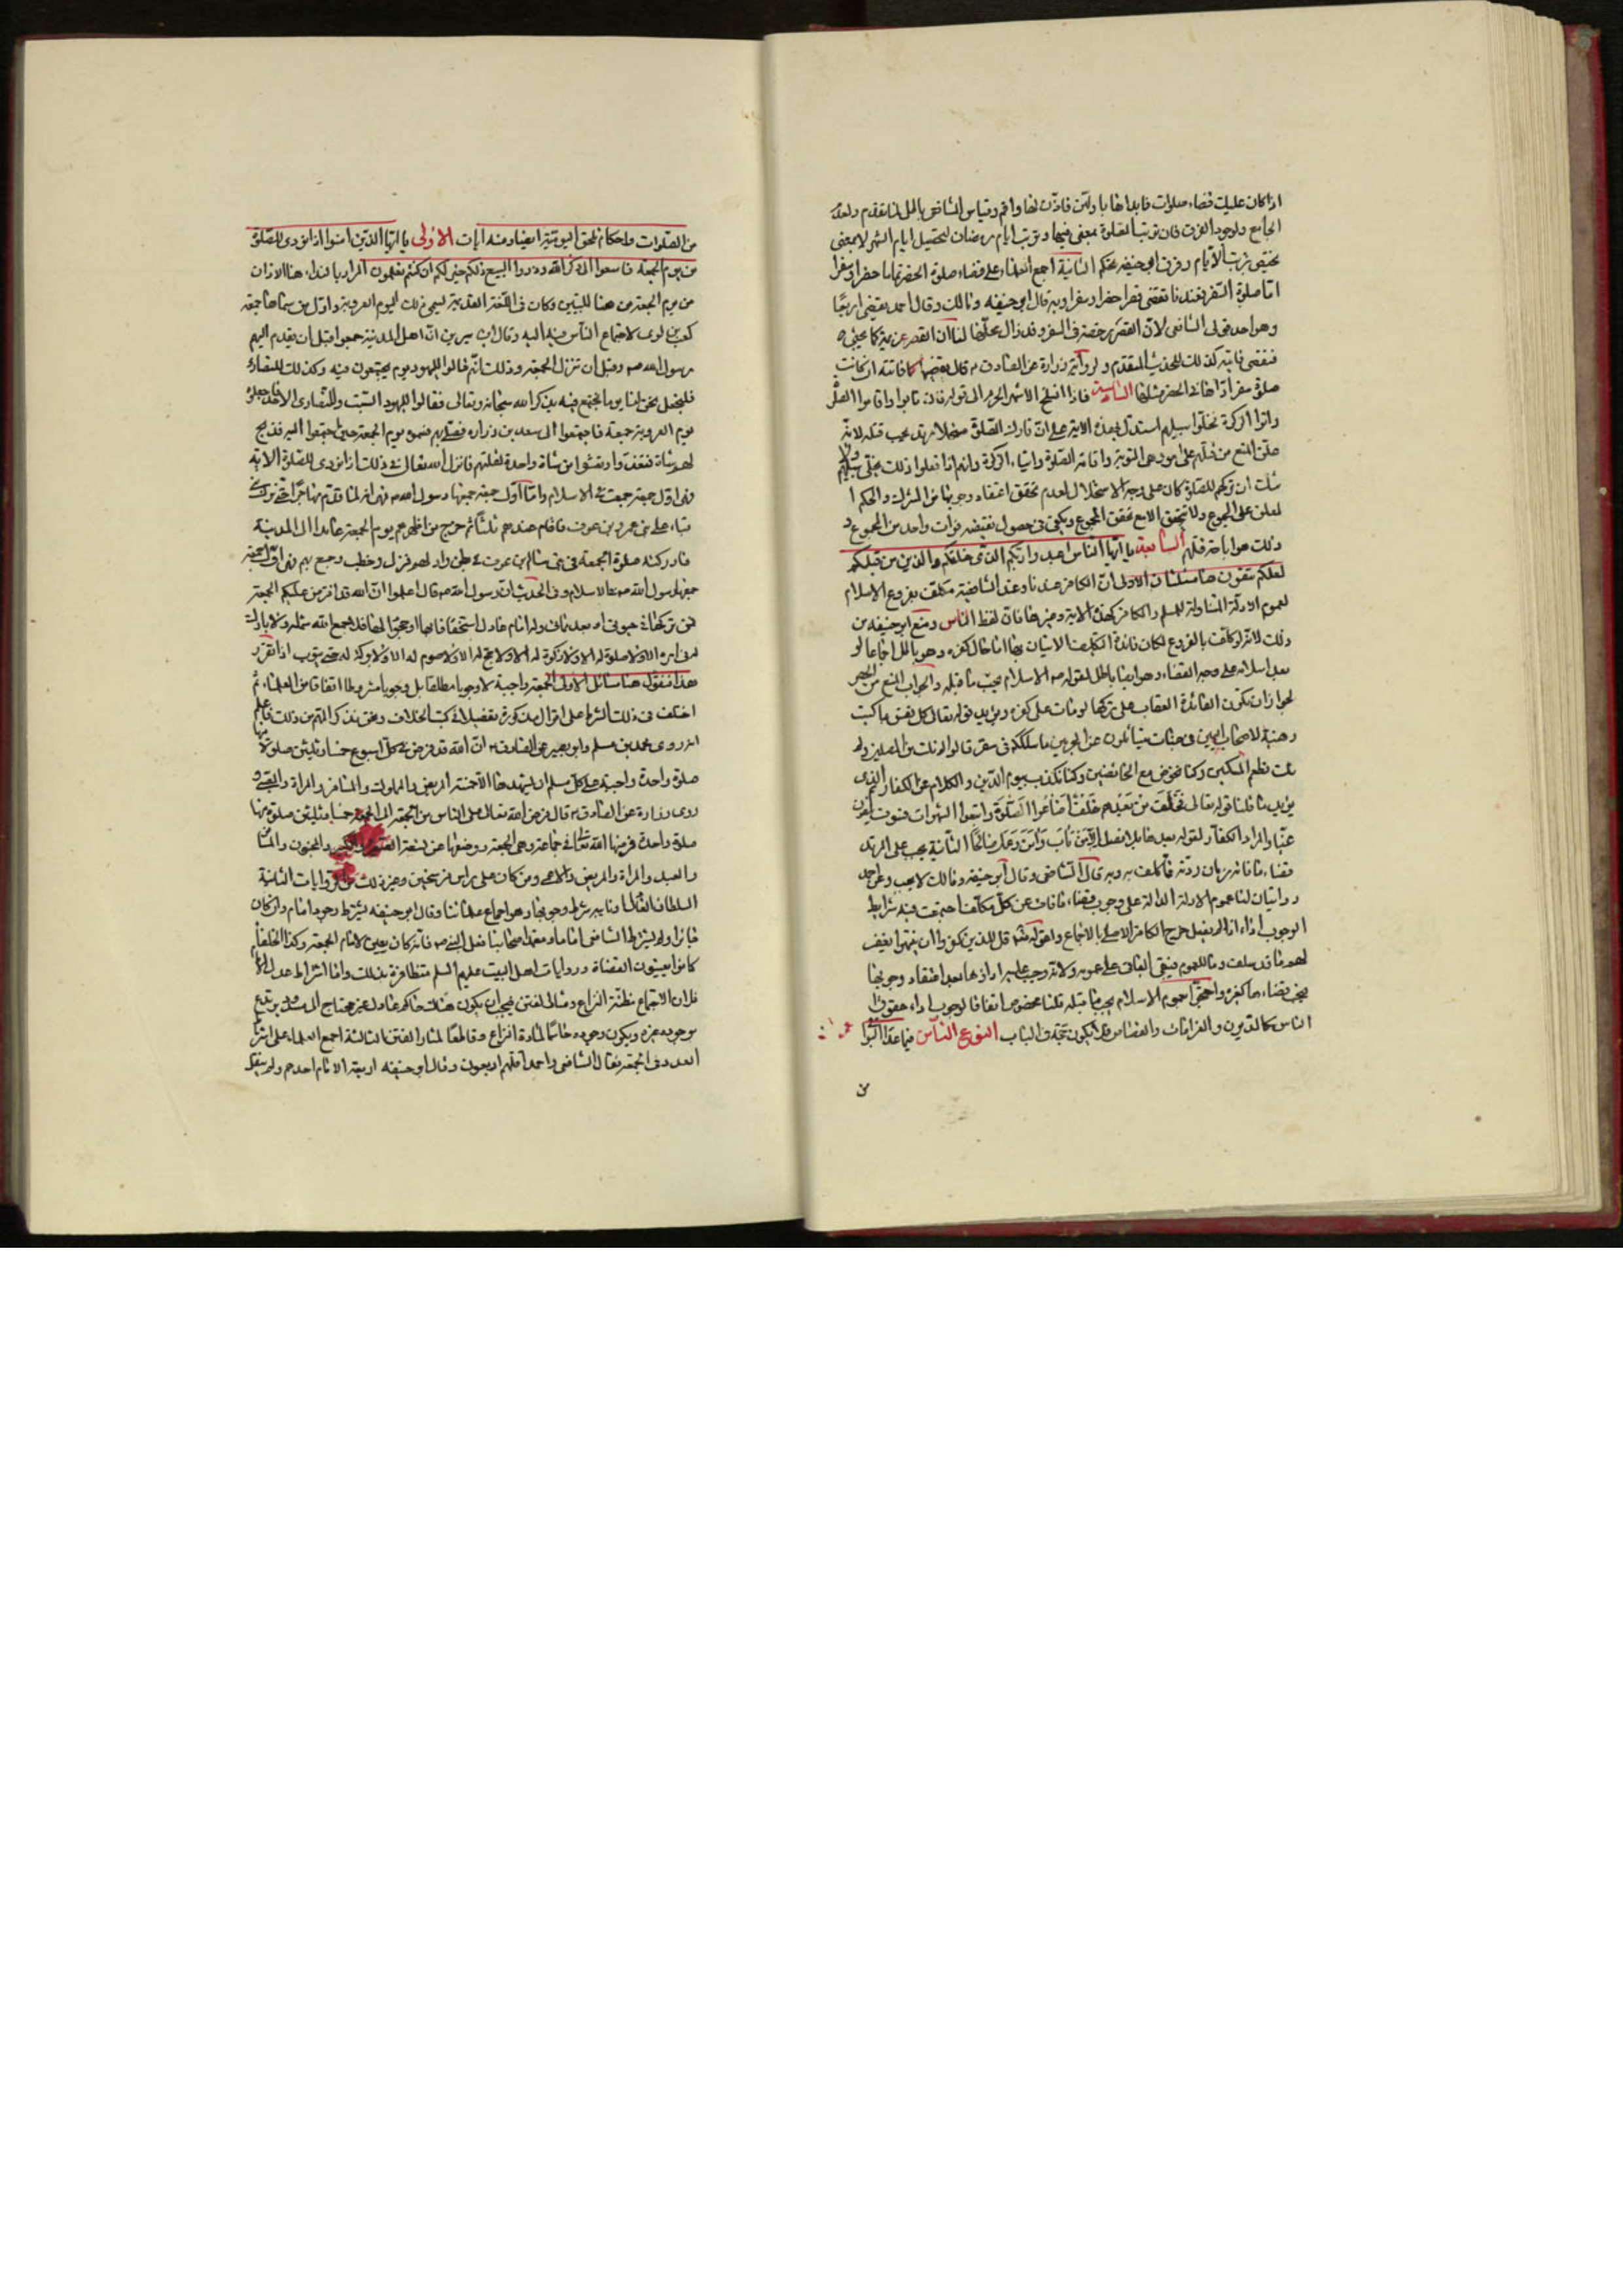 اذا كان عليك قضاء صلوات فابدا بأولهن فاذن لها واقم وقياس الشافعى باطل لما تقدم ولعدم
الجامع ولوجود الفرق فان ترتيب الصلوة معنى فيها وترتيب ايام رمضان لتحصيل ايام الشهر لا بمعنى
يختص بترتيب الأيام وفرق ابى حنيفه تحكم الثانية اجمع العلماء على قضاء صلوة الحضر تماما حضرا وسفرا
امّا صلوة السفر فعندنا تقضى قصرا حضرا وسفرا وبه قال ابو حنيفه ومالك وقال احمد يقضى اربعًا
وهو احد قولى الشافعى لانّ القصر رخصة فى السفر وقد زال محلّها لنا ان القصر عزيمة كما يجئ
فيقضى فايته كذلك للحديث المتقدم ولرواية زرارة عن الصادق ع قال يقضيها كما فاتته ان كانت
صلوة سفر اداها فى الحضر مثلها السادسة فاذا انسلخ الاشهر الحرم الى قوله فان تابوا واقاموا الصلوة
واتوا الزكوة فخلّوا سبيلهم استدل بهذه الاية على انّ تارك الصلوة مستحلا مرتد يجب قتله لانّه
علق المنع من قتلهم على امور هى التوبة واقامة الصلوة وايتاء الزكوة وانهم اذا فعلوا ذلك يخلّى سبيلهم ولا
شك ان تركهم للصلوة كان على وجه الاستحلال لعدم تحقق اعتقاد وجوبها من المشرك والحكم ا
لمعلق على المجموع ولا يتحقق الا مع تحقق المجموع ويكفى فى حصول نقيضه فوات واحد من المجموع و
ذلك هو اباحة قتلهم السابعة يا ايّها النّاس اعبدوا ربّكم الذى خلقكم والذين من قبلكم
لعلكم تتقون هنا مسئلتان الاولى انّ الكافر عندنا وعند الشافعية مكلّف بفروع الاسلام
لعموم الادلّة المتناولة للمسلم والكافر كهذه الاية وغيرها فان لفظ الناس ومنع ابو حنيفه من
ذلك لانّه لو كلّف بالفروع لكان فائدة التكليف الاتيان بها اما حال كفره وهو باطل اجماعا او
بعد اسلامه على وجه القضاء وهو ايضا باطل لقوله ص الاسلام يجبّ ما قبله والجواب المنع من الحصر
لجواز ان تكون الفائدة العقاب على تركها لو مات على كفره ويؤيده قوله تعالى كل نفس بما كسبت
رهينة الا اصحاب اليمين فى جنات يتسائلون عن المجرمين ما سلككم فى سقر قالوا لم نك من المصلين ولم
نك نطعم المسكين وكنا نخوض مع الخائضين وكنا نكذب بيوم الدّين والكلام عن الكفار الذى
يؤيد ما قلنا قوله تعالى فخلف من بعدهم خلف اضاعوا الصلوة واتبعوا الشهوات فسوف يلقون
غيّا والمراد الكفّار لقوله بعد هذا بلا فصل الّا من تاب وآمن وعمل صالحًا الثانية يجب على المرتد
قضاء ما فاته زمان ردّته فالمكلف به وبه قال الشافعى وقال ابو حنيفه ومالك لا يجب وعن احمد
روايتان لنا عموم الادلة الدالة على وجوب قضاء ما فات عن كل مكلّف اجتمعت فيه شرايط
الوجوب اداء اذا لم يفعل خرج الكافر الاصلى بالاجماع ولقوله تعالى قل للذين كفروا ان ينتهوا يغفر
لهم ما قد سلف وما للعموم فيبقى الباقى على عمومه ولانّه وجب عليه ادائها بعد اعتقاد وجوبها
فيجب قضاءها كغيره واحتجّا بعموم الاسلام يجبّ ما قبله قلنا مخصوص اتفاقا لوجوب اداء حقوق
الناس كالديون والغرامات والقصاص فلم لا يكون كذلك الباب النوع الثامن فيما عدا اليوميّة
من
من الصّلوات واحكام تلحق اليوميّة ايضا وفيه ايات الاولى يا ايّها الذين امنوا اذا نودى للصّلوة
من يوم الجمعة فاسعوا الى ذكر الله وذروا البيع ذلكم خير لكم ان كنتم تعلمون المراد بالنداء هنا الاذان
من يوم الجمعة من هنا للتبيين وكان فى اللّغة القديمة يسمى ذلك اليوم العروبة واوّل من سماها جمعة
كعب بن لوى لاجتماع النّاس فيه اليه وقال ابن سيرين انّ اهل المدينة جمعوا قبل ان يقدم اليهم
رسول الله ص وقبل ان تنزل الجمعة وذلك انّهم قالوا لليهود يوم يجتمعون فيه وكذلك للنصارى
فلنجعل نحن لنا يوما نجتمع فيه نذكر الله سبحانه وتعالى فقالوا لليهود السّبت وللنّصارى الاحد فاجعلوه
يوم العروبة جمعة فاجتمعوا الى سعد بن زراره فصلى بهم فسموه يوم الجمعة حين اجتمعوا اليه فذبح
لهم شاة فتغدّوا وتعشّوا من شاة واحدة لقلتهم فانزل الله تعالى فى ذلك اذا نودى للصّلوة الاية
فهى اوّل جمعة جمعت فى الاسلام وامّا اوّل جمعة جمعها رسول الله ص فهى انه لما قدم مهاجرا حتى نزل
قباء على بنى عمرو بن عوف فاقام عندهم ثلثا ثم خرج من اظهرهم يوم الجمعة عامدا الى المدينة
فادركته صلوة الجمعة فى بنى سالم بن عوف فى بطن واد لهم فنزل وخطب وجمع بهم فهى اوّل جمعة
جمعها رسول الله ص فى الاسلام وفى الحديث انّ رسول الله ص قال اعلموا انّ الله قد افترض عليكم الجمعة
فمن تركها فى حيوتى او بعد مماتى وله امام عادل استخفافا بها او جحودا لها فلا جمع الله شمله ولا بارك
له فى امره الا ولا صلوة له الا ولا زكوة له الا ولا حج له الا ولا صوم له الا ولا بركة له حتى يتوب اذا تقرّر
هذا فنقول هنا مسائل الاولى الجمعة واجبة لا وجوبا مطلقا بل وجوبا مشروطا اتفاقا من العلماء ثم
اختلف فى ذلك الشرط على اقوال مذكورة تفصيلا فى كتب الخلاف ونحن نذكر المهم من ذلك فاعلم
انه روى محمد بن مسلم وابو بصير عن الصادق ع انّ الله قد فرض فى كلّ اسبوع خمسا وثلثين صلوة منها
صلوة واحدة واجبة على كل مسلم ان يشهدها الّا خمسة المريض والمملوك والمسافر والمراة والصّبى و
روى زرارة عن الصّادق ع قال فرض الله تعالى على الناس من الجمعة الى الجمعة خمسا وثلثين صلوة منها
صلوة واحدة فرضها الله تعالى فى جماعة وهى الجمعة ووضعها عن تسعة الصغير والكبير والمجنون والمسافر
والعبد والمراة والمريض والاعمى ومن كان على راس فرسخين وغير ذلك من الروايات الثانية
السلطان العادل او نايبه شرط وجوبها وهو اجماع علمائنا وقال ابو حنيفه يشترط وجود امام وان كان
جائرا ولم يشترط الشافعى اماما ومعتمد اصحابنا فعل النبى ص فانّه كان يعين لامام الجمعة وكذا الخلفاء
كما يعيّنون القضاة وروايات اهل البيت عليهم السلم متظافرة بذلك وامّا اشتراط عدالة الامام
فلانّ الاجتماع مظنّة النزاع ومثار الفتن فيجب ان يكون هناك حاكم عادل غير محتاج الى مشاركته يرتفع
بوجوده غيره ويكون وجوده حاسمًا لمادة النزاع وقاطعًا لمثار الفتن الثالثة اجمع العلماء على اشتراط
العدد فى الجمعة فقال الشافعى واحمد اقلّهم اربعون وقال ابو حنيفه اربعة الامام احدهم ولم ينقل